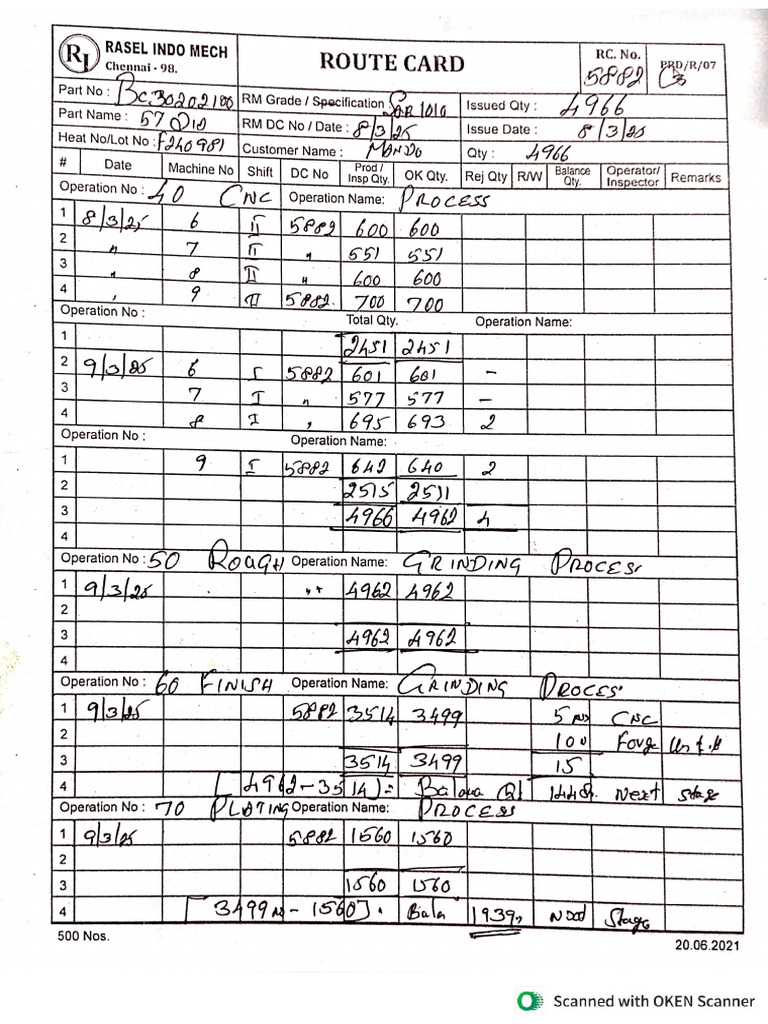 RI RASEL INDO MECH
Chennai - 98.
ROUTE CARD
RC. No.
5882
PRD/R/07
Part No : BC30202100
RM Grade / Specification SAR1010
Issued Qty : 4966
Part Name : 57 Dia
RM DC No / Date : 8/3/25
Issue Date : 8/3/25
Heat No/Lot No : F240981
Customer Name : MANDO
Qty : 4966
# Date Machine No Shift DC No Prod / Insp Qty. OK Qty. Rej Qty R/W Balance Qty. Operator/ Inspector Remarks
Operation No : 40 CNC Operation Name: PROCESS
1 8/3/25 6 II 5882 600 600
2 " 7 II " 551 551
3 " 8 II " 600 600
4 " 9 II 5882 700 700
Operation No : Total Qty. Operation Name:
1 2451 2451
2 9/3/25 6 I 5882 601 601 -
3 7 I " 577 577 -
4 8 I " 695 693 2
Operation No : Operation Name:
1 9 I 5882 642 640 2
2 2515 2511
3 4966 4962 4
4
Operation No : 50 ROUGH Operation Name: GRINDING PROCESS
1 9/3/25 " 4962 4962
2
3 4962 4962
4
Operation No : 60 FINISH Operation Name: GRINDING PROCESS
1 9/3/25 5882 3514 3499 5 No CNC
2 10 Forge
3 3514 3499 15
4 [4962-3514]= 1448 Next Stage
Operation No : 70 PLATING Operation Name: PROCESS
1 9/3/25 5882 1560 1560
2
3 1560 1560
4 [3499 - 1560]. Bala 1939 Next Stage
500 Nos.
20.06.2021
Scanned with OKEN Scanner